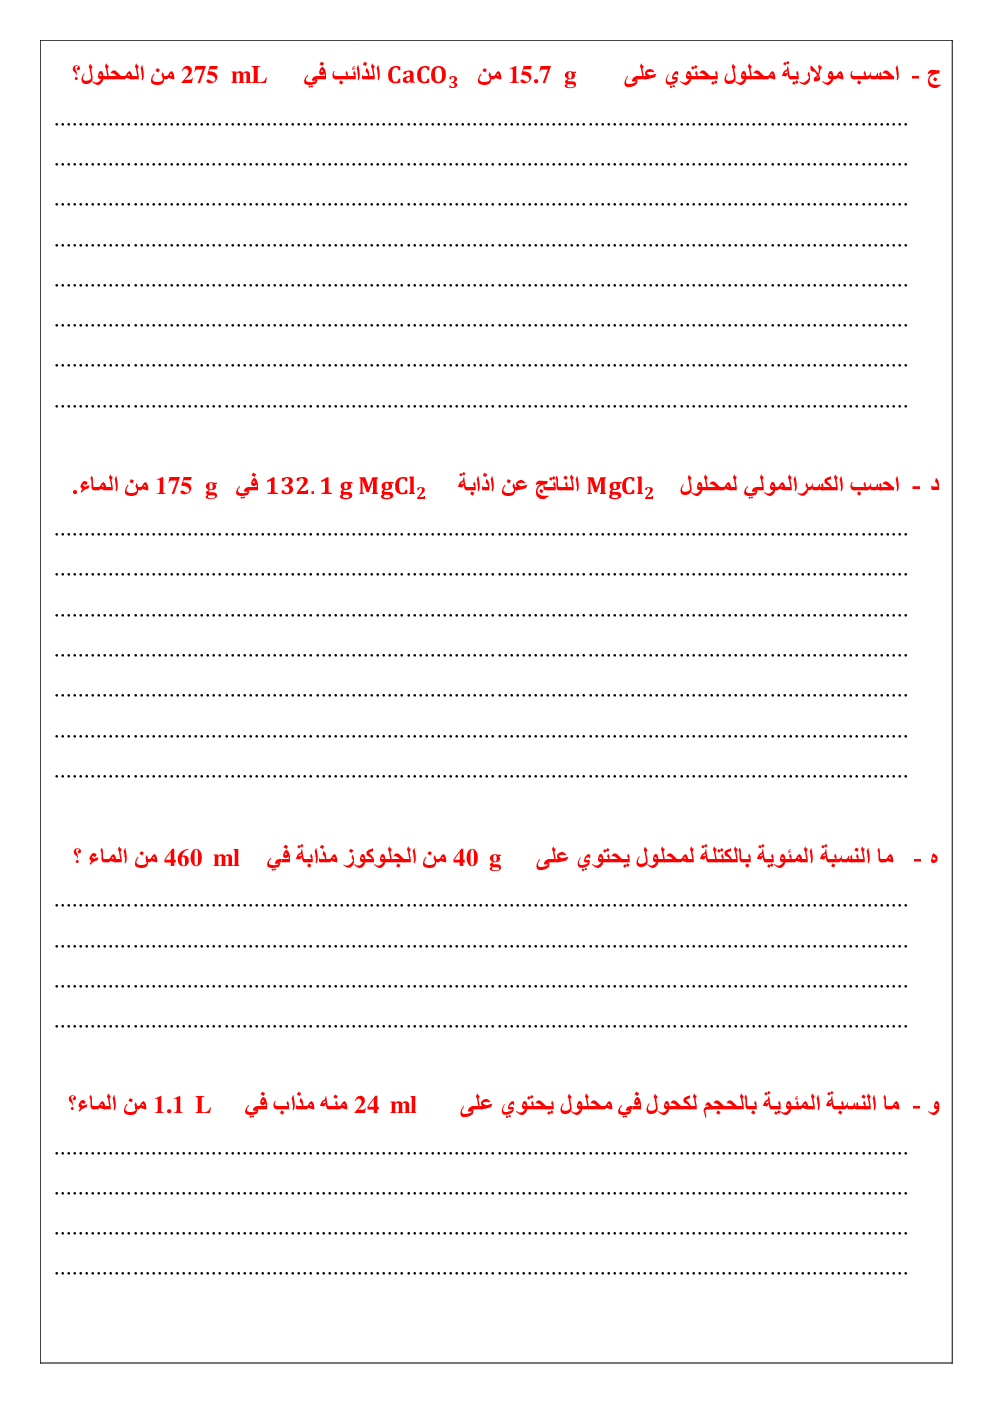 ج - احسب مولارية محلول يحتوي على 15.7 g من CaCO₃ الذائب في 275 mL من المحلول؟
................................................................................
................................................................................
................................................................................
................................................................................
................................................................................
................................................................................
................................................................................
................................................................................
د - احسب الكسرالمولي لمحلول MgCl₂ الناتج عن اذابة 132.1 g MgCl₂ في 175 g من الماء.
................................................................................
................................................................................
................................................................................
................................................................................
................................................................................
................................................................................
................................................................................
ه - ما النسبة المئوية بالكتلة لمحلول يحتوي على 40 g من الجلوكوز مذابة في 460 ml من الماء ؟
................................................................................
................................................................................
................................................................................
................................................................................
و - ما النسبة المئوية بالحجم لكحول في محلول يحتوي على 24 ml منه مذاب في 1.1 L من الماء؟
................................................................................
................................................................................
................................................................................
................................................................................